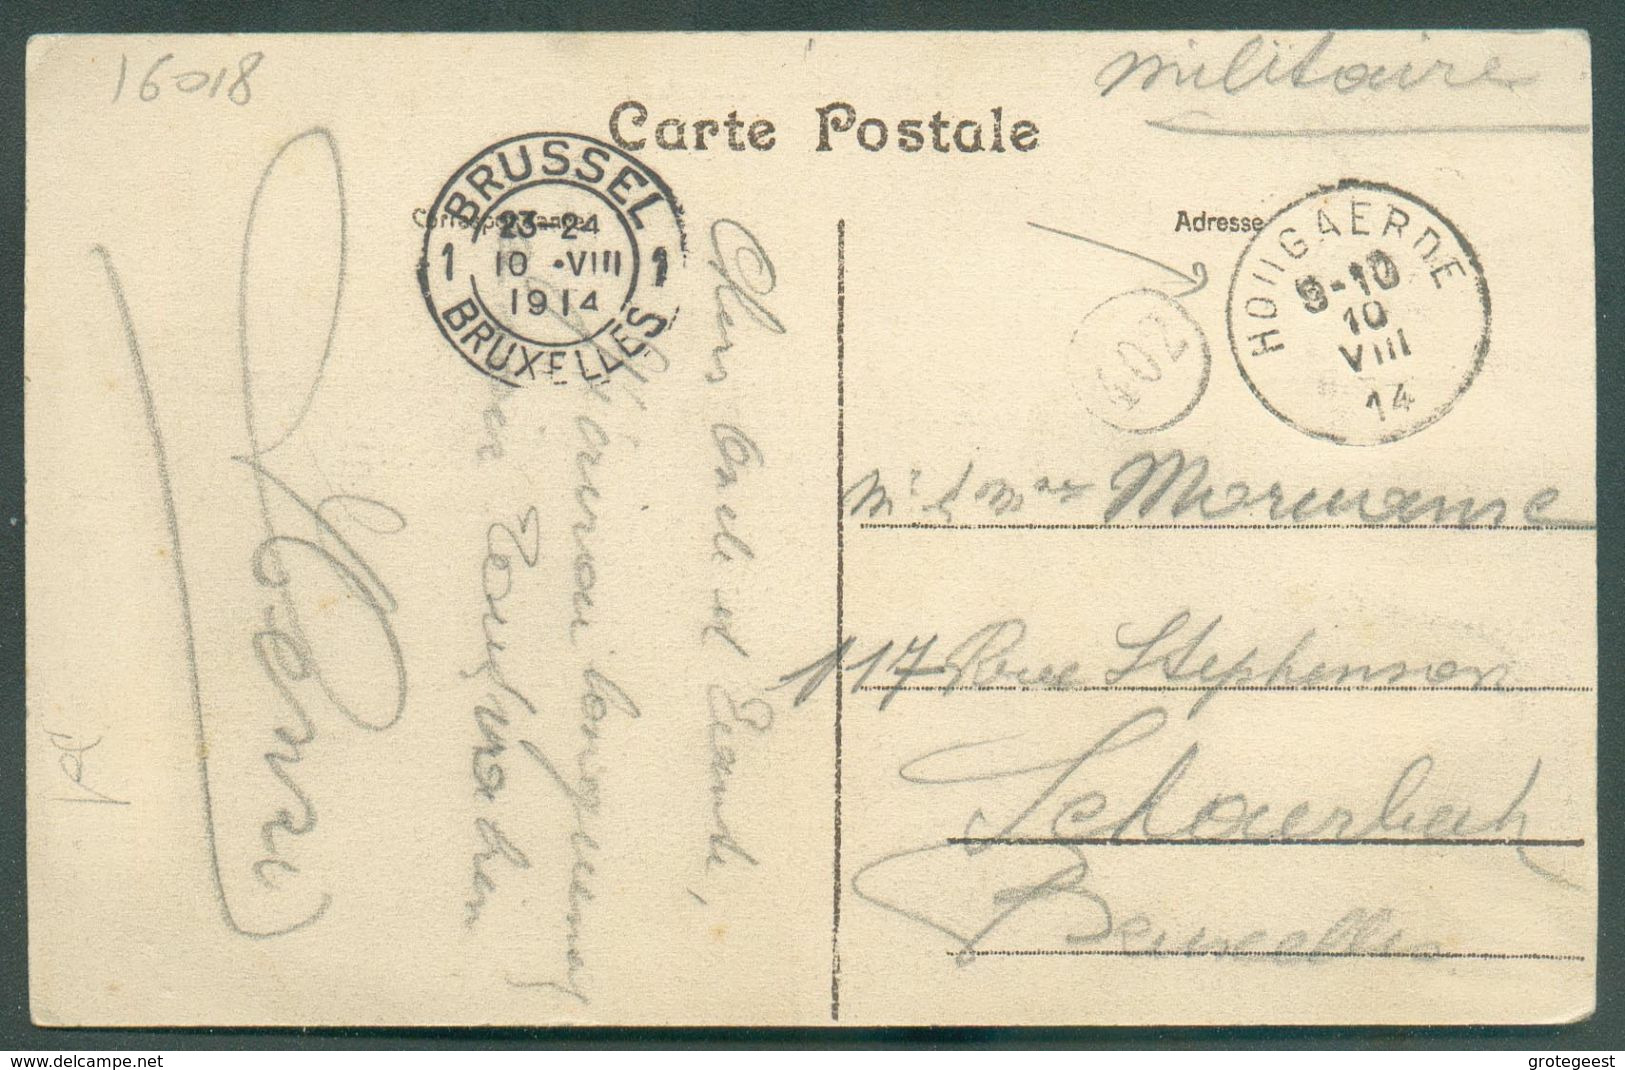 16018
militaire
Carte Postale
Correspondance
Adresse
BRUSSEL
1 23-24 1
10 ·VIII
1914
BRUXELLES
HOUGAERDE
9-10
10
VIII
14
402
Chers Oncle et Tante,
longuement
Henri
Mr & Mme
117 Rue Stephenson
Schaerbeek
Bruxelles
www.delcampe.net
grotegeest